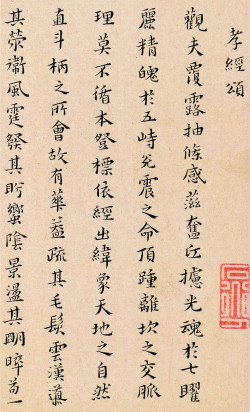 孝經頌
觀夫覆露抽條感滋奮丘攄光魂於七曜
麗精魄於五峙兌震之命頂踵離坎之交脈
理莫不循本登標依經出緯象天地之自然
直斗柄之所會故有華蓋疏其毛髮雲漢道
其榮衞風霆發其盻蠁陰景盪其明晬為一